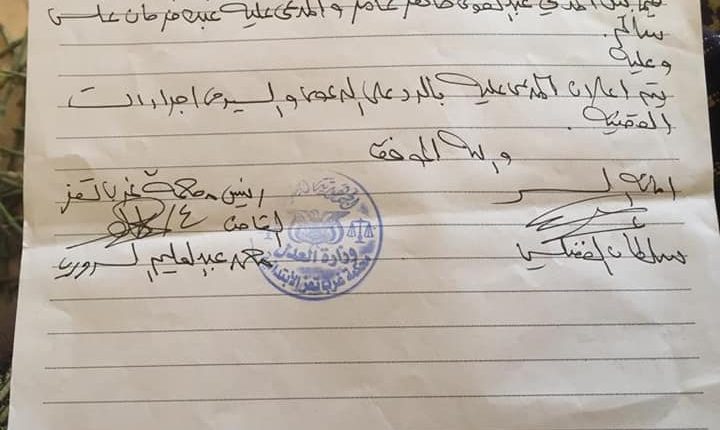 فيما بين المدعي عبدالقوي عامر والمدعى عليه عبده فرحان علي
سالم.
وعليه
يتم اعلان المدعى عليه بالرد على الدعوى والسير في اجراءات
القضية.
والله الموفق
امانة السر
رئيس محكمة غرب تعز
القاضي
سلطان
محمد عبدالعليم السروري
وزارة العدل
محكمة غرب تعز الابتدائية